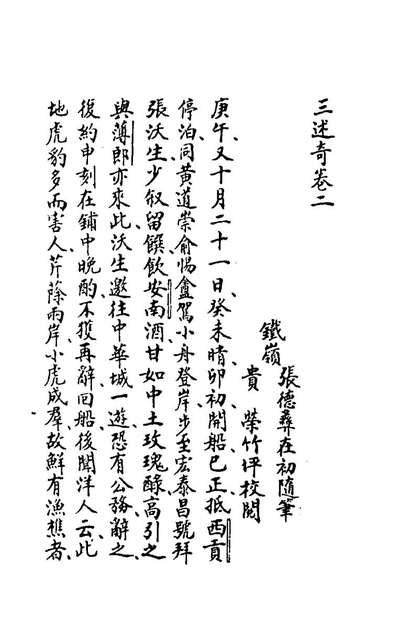 三述奇卷二
鐵嶺張德彝在初隨筆
貴榮竹坪校閱
庚午、又十月二十一日、癸未晴、卯初開船、巳正抵西貢
停泊、同黃道崇俞惕盦駕小舟登岸、步至宏泰昌號拜
張沃生少敘、留饌、飲安南酒、甘如中土玫瑰醁、高引之
與薄郎亦來此、沃生邀往中華城一遊、恐有公務辭之、
復約申刻在鋪中晚酌、不獲再辭、回船後聞洋人云、此
地虎豹多而害人、芹蒢兩岸小虎成羣、故鮮有漁樵者、